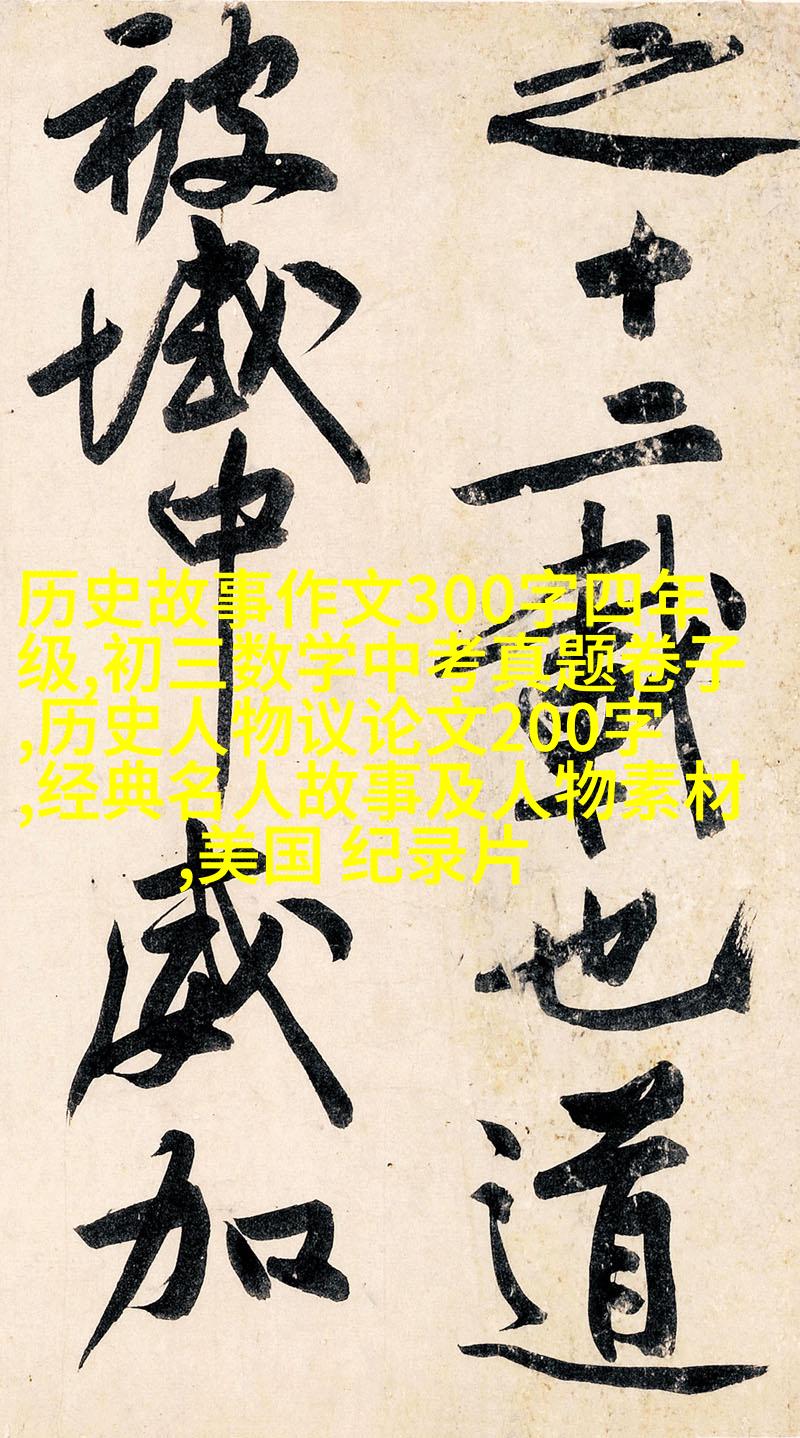 之十二載也道
被域中威加
历史故事作文300字四年
级,初三数学中考真题卷子
,历史人物议论文200字
,经典名人故事及人物素材
,美国 纪录片